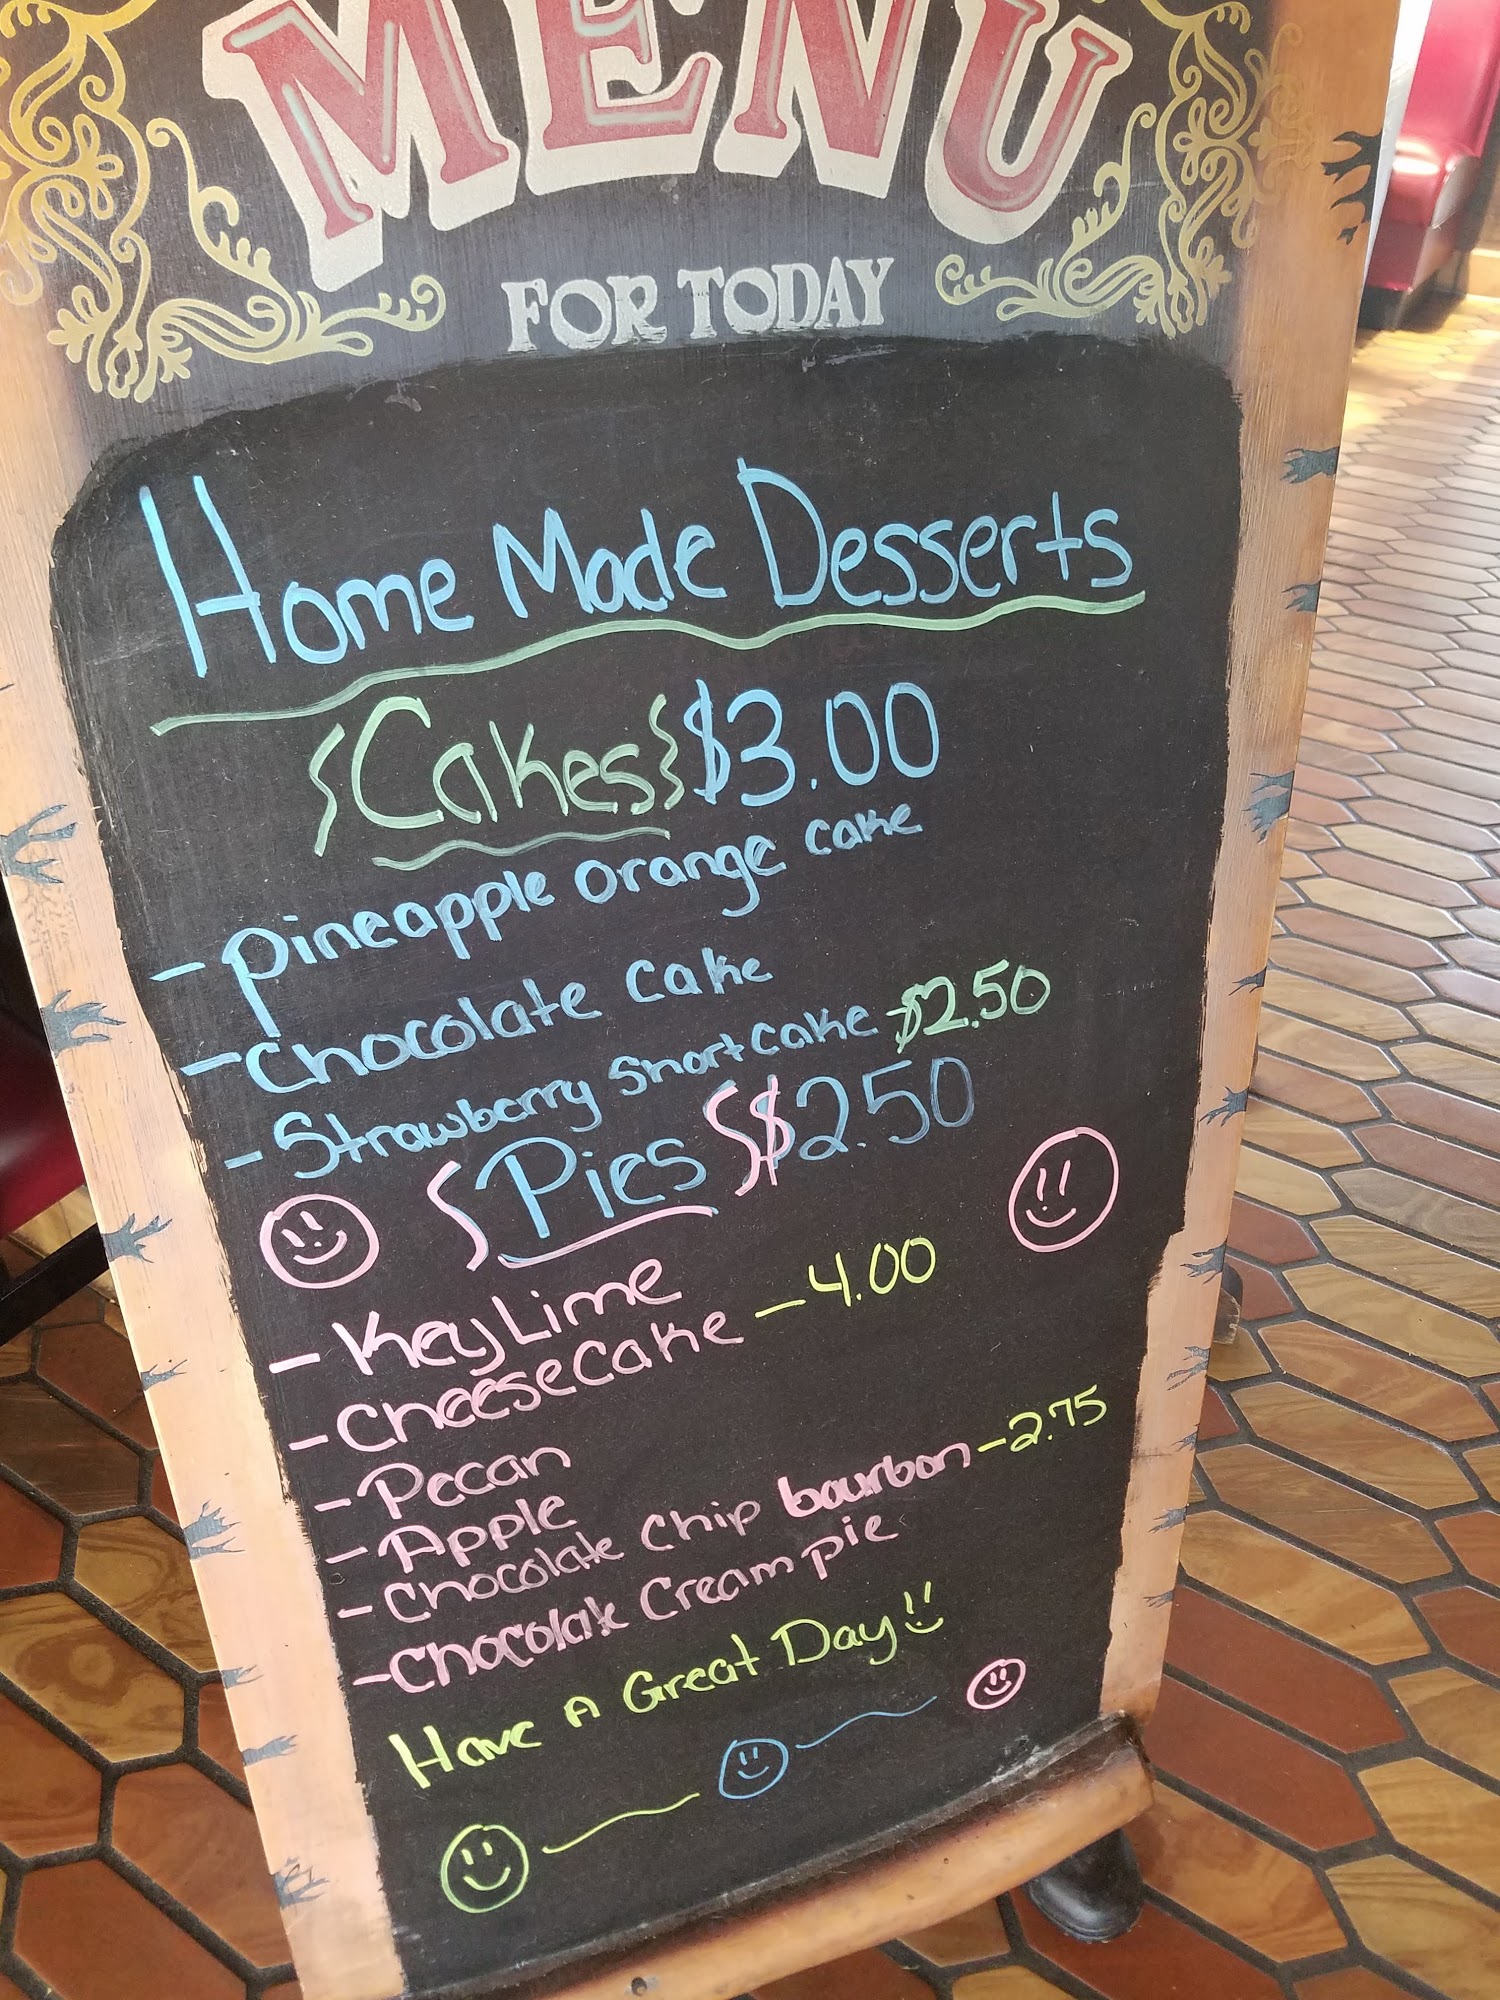 MENU
FOR TODAY
Home Made Desserts
Cakes $3.00
- Pineapple orange cake
- Chocolate Cake
- Strawberry Short Cake - $2.50
Pies $2.50
- Key Lime
- Cheesecake - 4.00
- Pecan
- Apple
- Chocolate Chip bourbon - 2.75
- Chocolate Cream pie
Have A Great Day